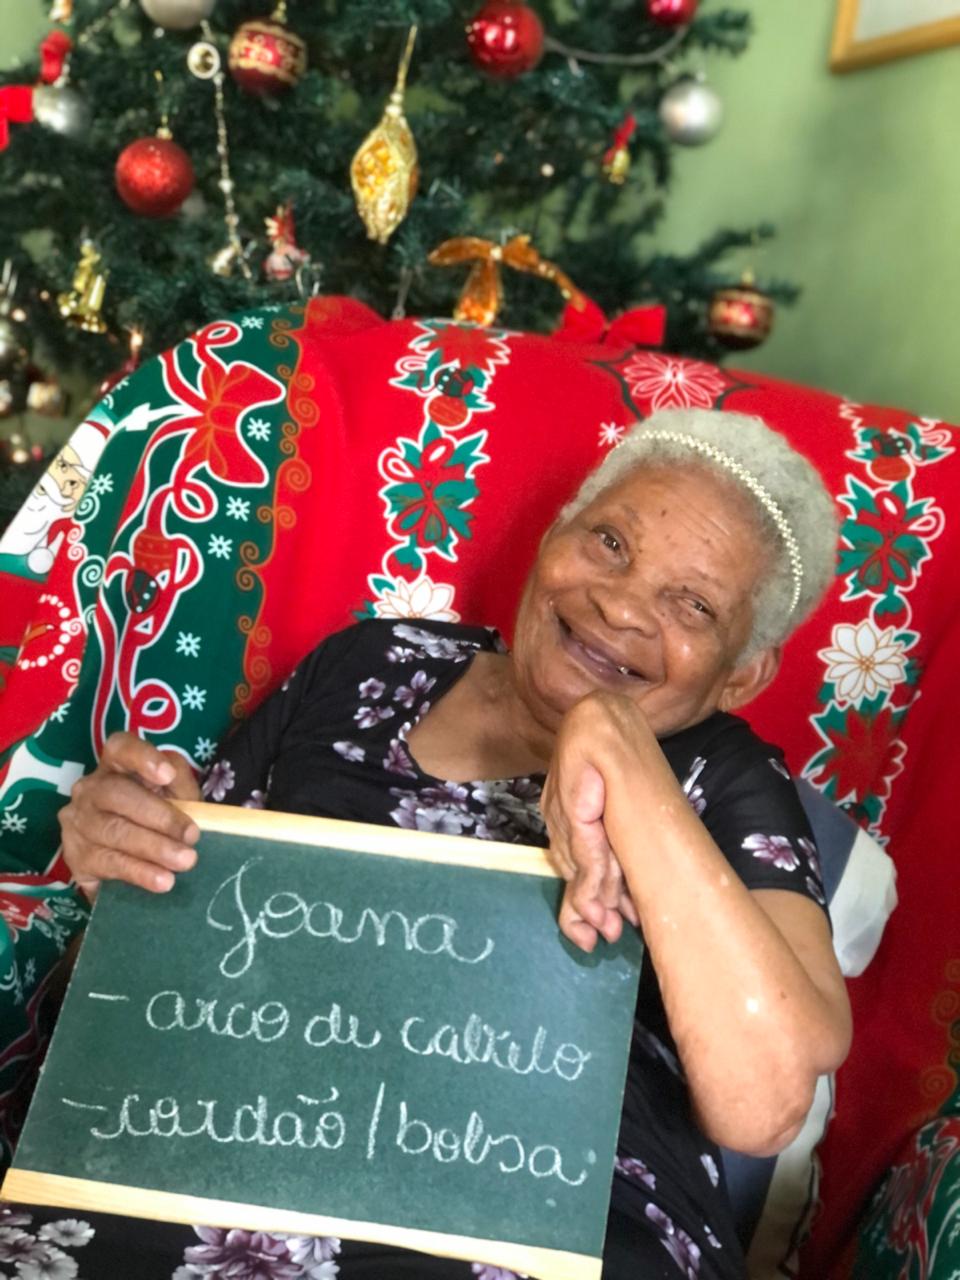 Joana
- arco de cabelo
- cordão / bolsa